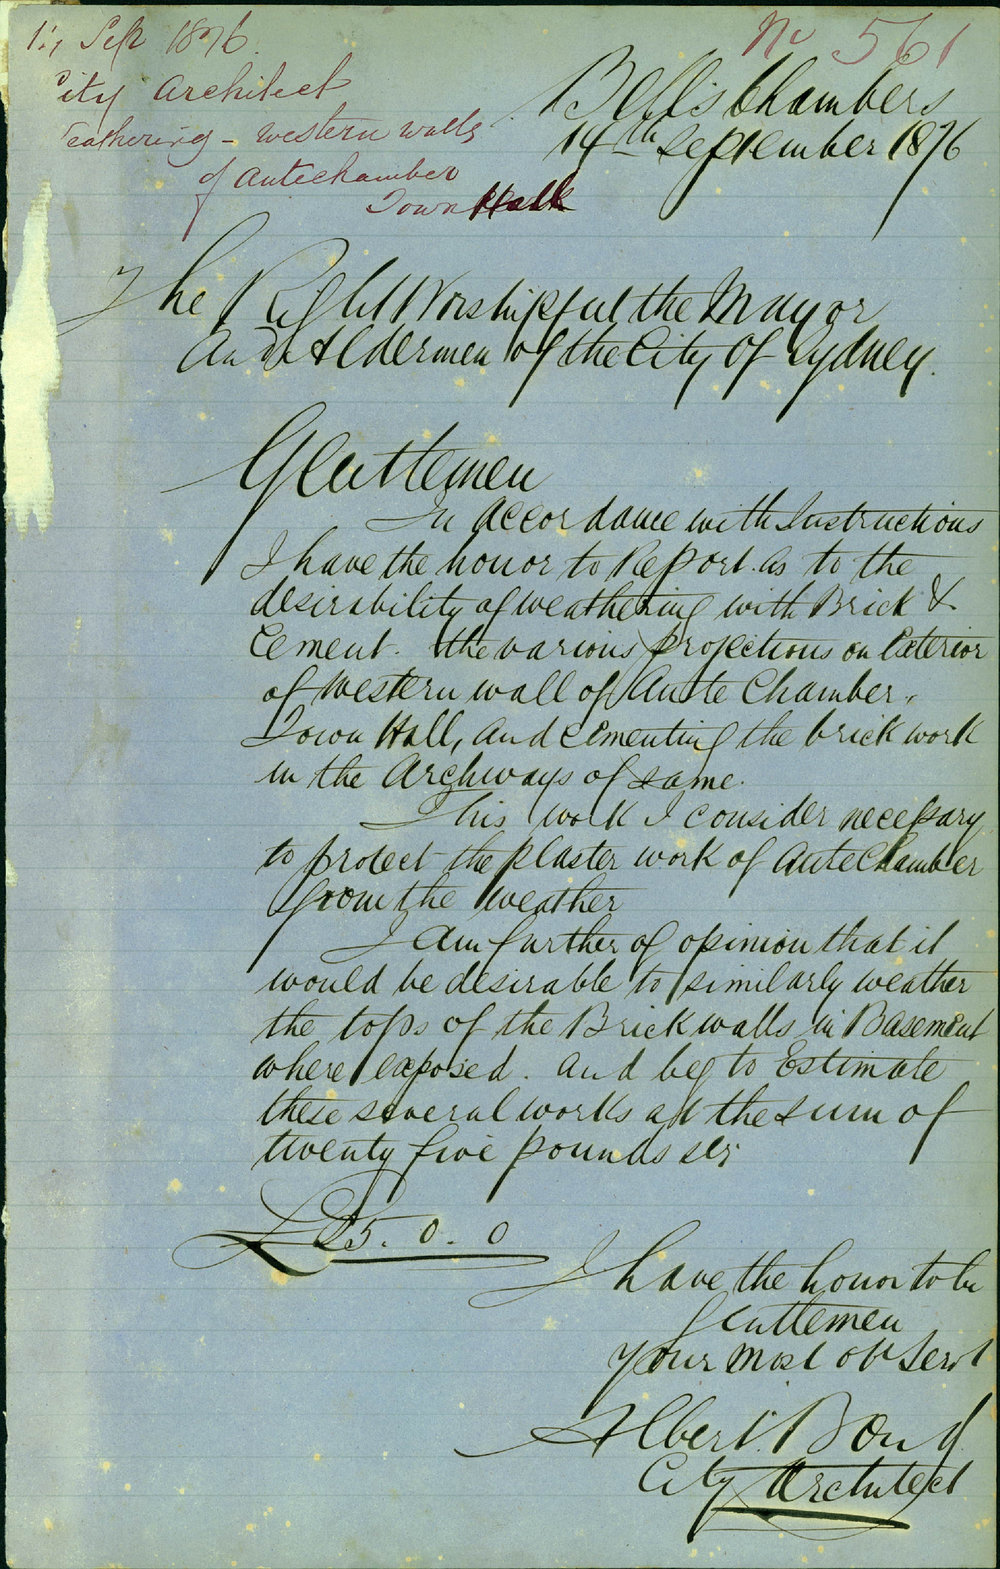 15 Sep 1876.
No 561
City Architect
Weathering – Western walls
of Antechamber
Town Hall
Bell's Chambers
14th September 1876
The Right Worshipful the Mayor
And Aldermen of the City Of Sydney.
Gentlemen
In accordance with Instructions
I have the honor to Report as to the
desirability of weathering with Brick &
Cement. the various projections on Exterior
of Western wall of Ante Chamber.
Town Hall, and cementing the brick work
in the Archways of same.
This work I consider necessary
to protect the plaster work of AnteChamber
from the weather
I am further of opinion that it
would be desirable to similarly weather
the tops of the Brick walls in Basement
where exposed. and beg to Estimate
these several works at the sum of
twenty five pounds stg
£25. 0. 0
I have the honor to be
Gentlemen
Your most obt Servt
Albert Bond
City Architect